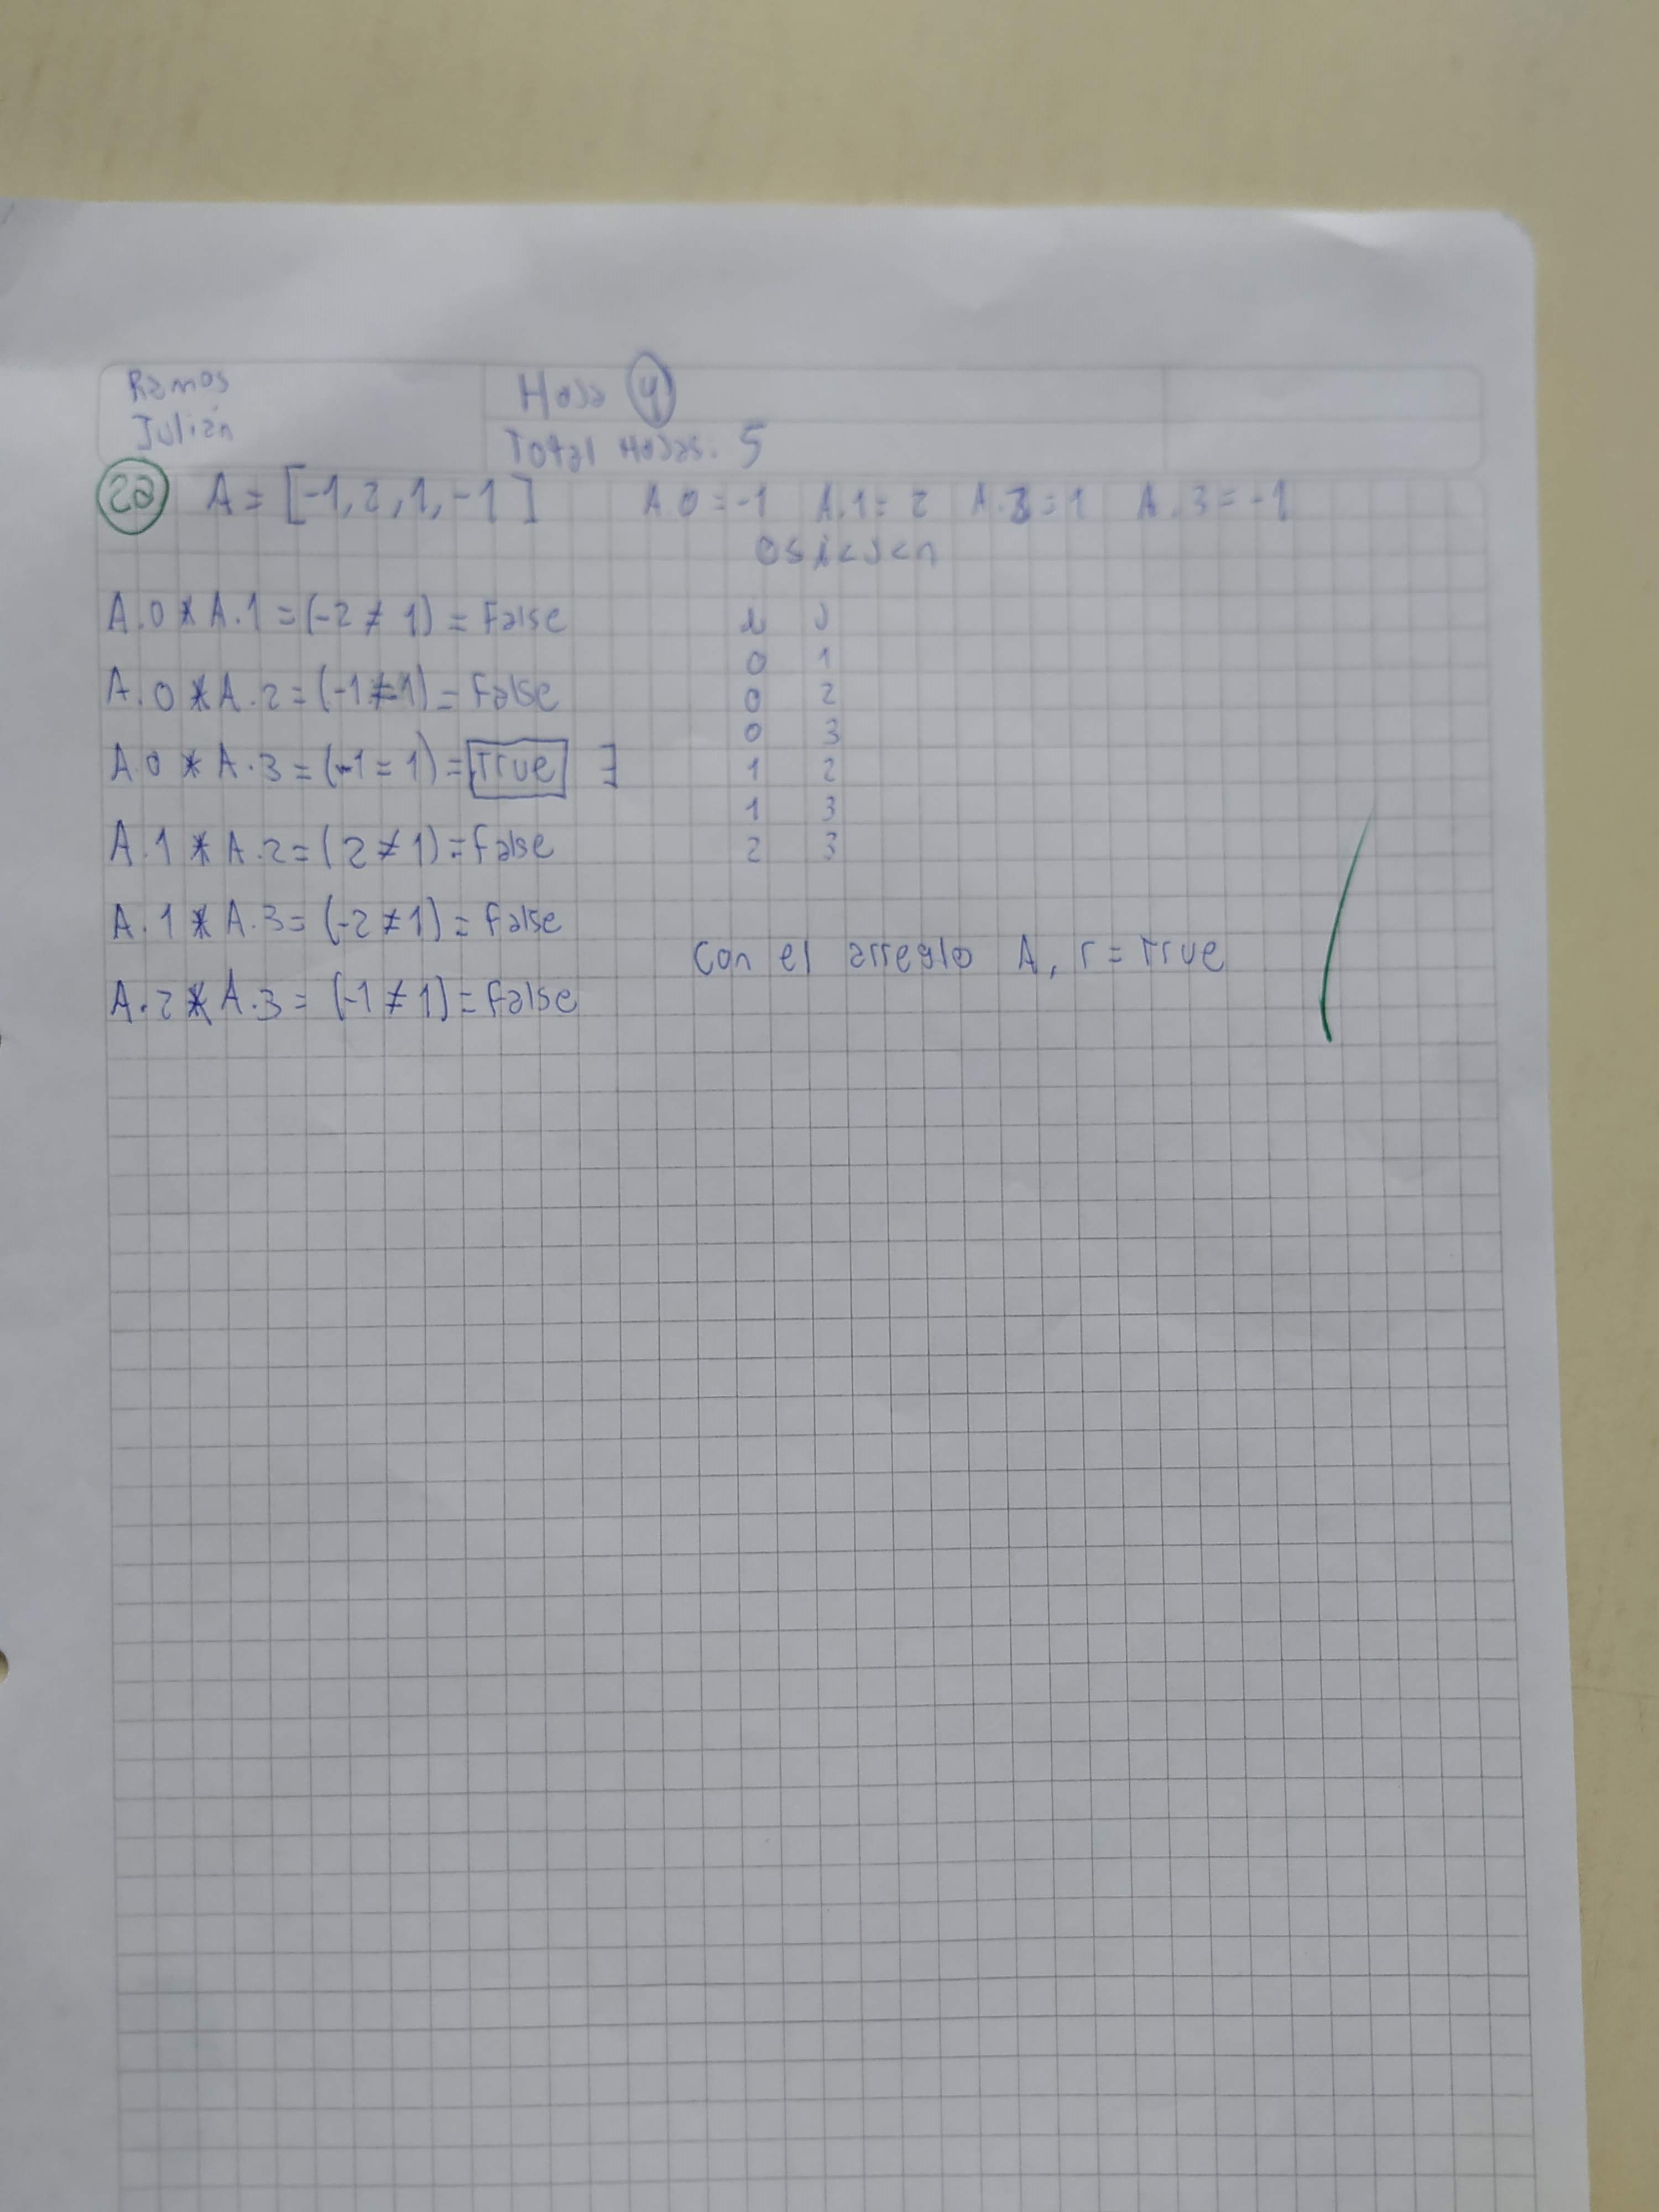 Ramos
Julián
Hoja 4
Total Hojas: 5
2a) A = [-1, 2, 1, -1] A.0 = -1 A.1 = 2 A.3 = 1 A.3 = -1
0≤i<j<n
A.0 * A.1 = (-2 ≠ 1) = False
A.0 * A.2 = (-1 ≠ 1) = False
A.0 * A.3 = (-1 = 1) = True ∃
A.1 * A.2 = (2 ≠ 1) = False
A.1 * A.3 = (-2 ≠ 1) = False
A.2 * A.3 = (-1 ≠ 1) = False
i j
0 1
0 2
0 3
1 2
1 3
2 3
Con el arreglo A, r = True